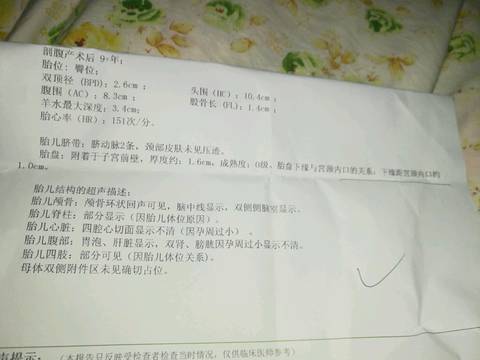 剖腹产术后 9+年;
胎位: 臀位;
双顶径 (BPD): 2.6cm ; 头围 (HC): 10.4cm ;
腹围 (AC): 8.3cm ; 股骨长 (FL): 1.4cm ;
羊水最大深度: 3.4cm;
胎心率 (HR): 151次/分.
胎儿脐带: 脐动脉2条, 颈部皮肤未见压迹.
胎盘: 附着于子宫前壁, 厚度约: 1.6cm, 成熟度: 0级、胎盘下缘与宫颈内口的关系: 下缘距宫颈内口约
1.0cm.
胎儿结构的超声描述:
胎儿颅骨: 颅骨环状回声可见, 脑中线显示, 双侧侧脑室显示.
胎儿脊柱: 部分显示 (因胎儿体位原因).
胎儿心脏: 四腔心切面显示不清 (因孕周过小) 。
胎儿腹部: 胃泡、肝脏显示, 双肾、膀胱因孕周过小显示不清.
胎儿四肢: 部分可见 (因胎儿体位关系).
母体双侧附件区未见确切占位.
声提示: (本报告只反映受检查者检查当时情况, 仅供临床医师参考)